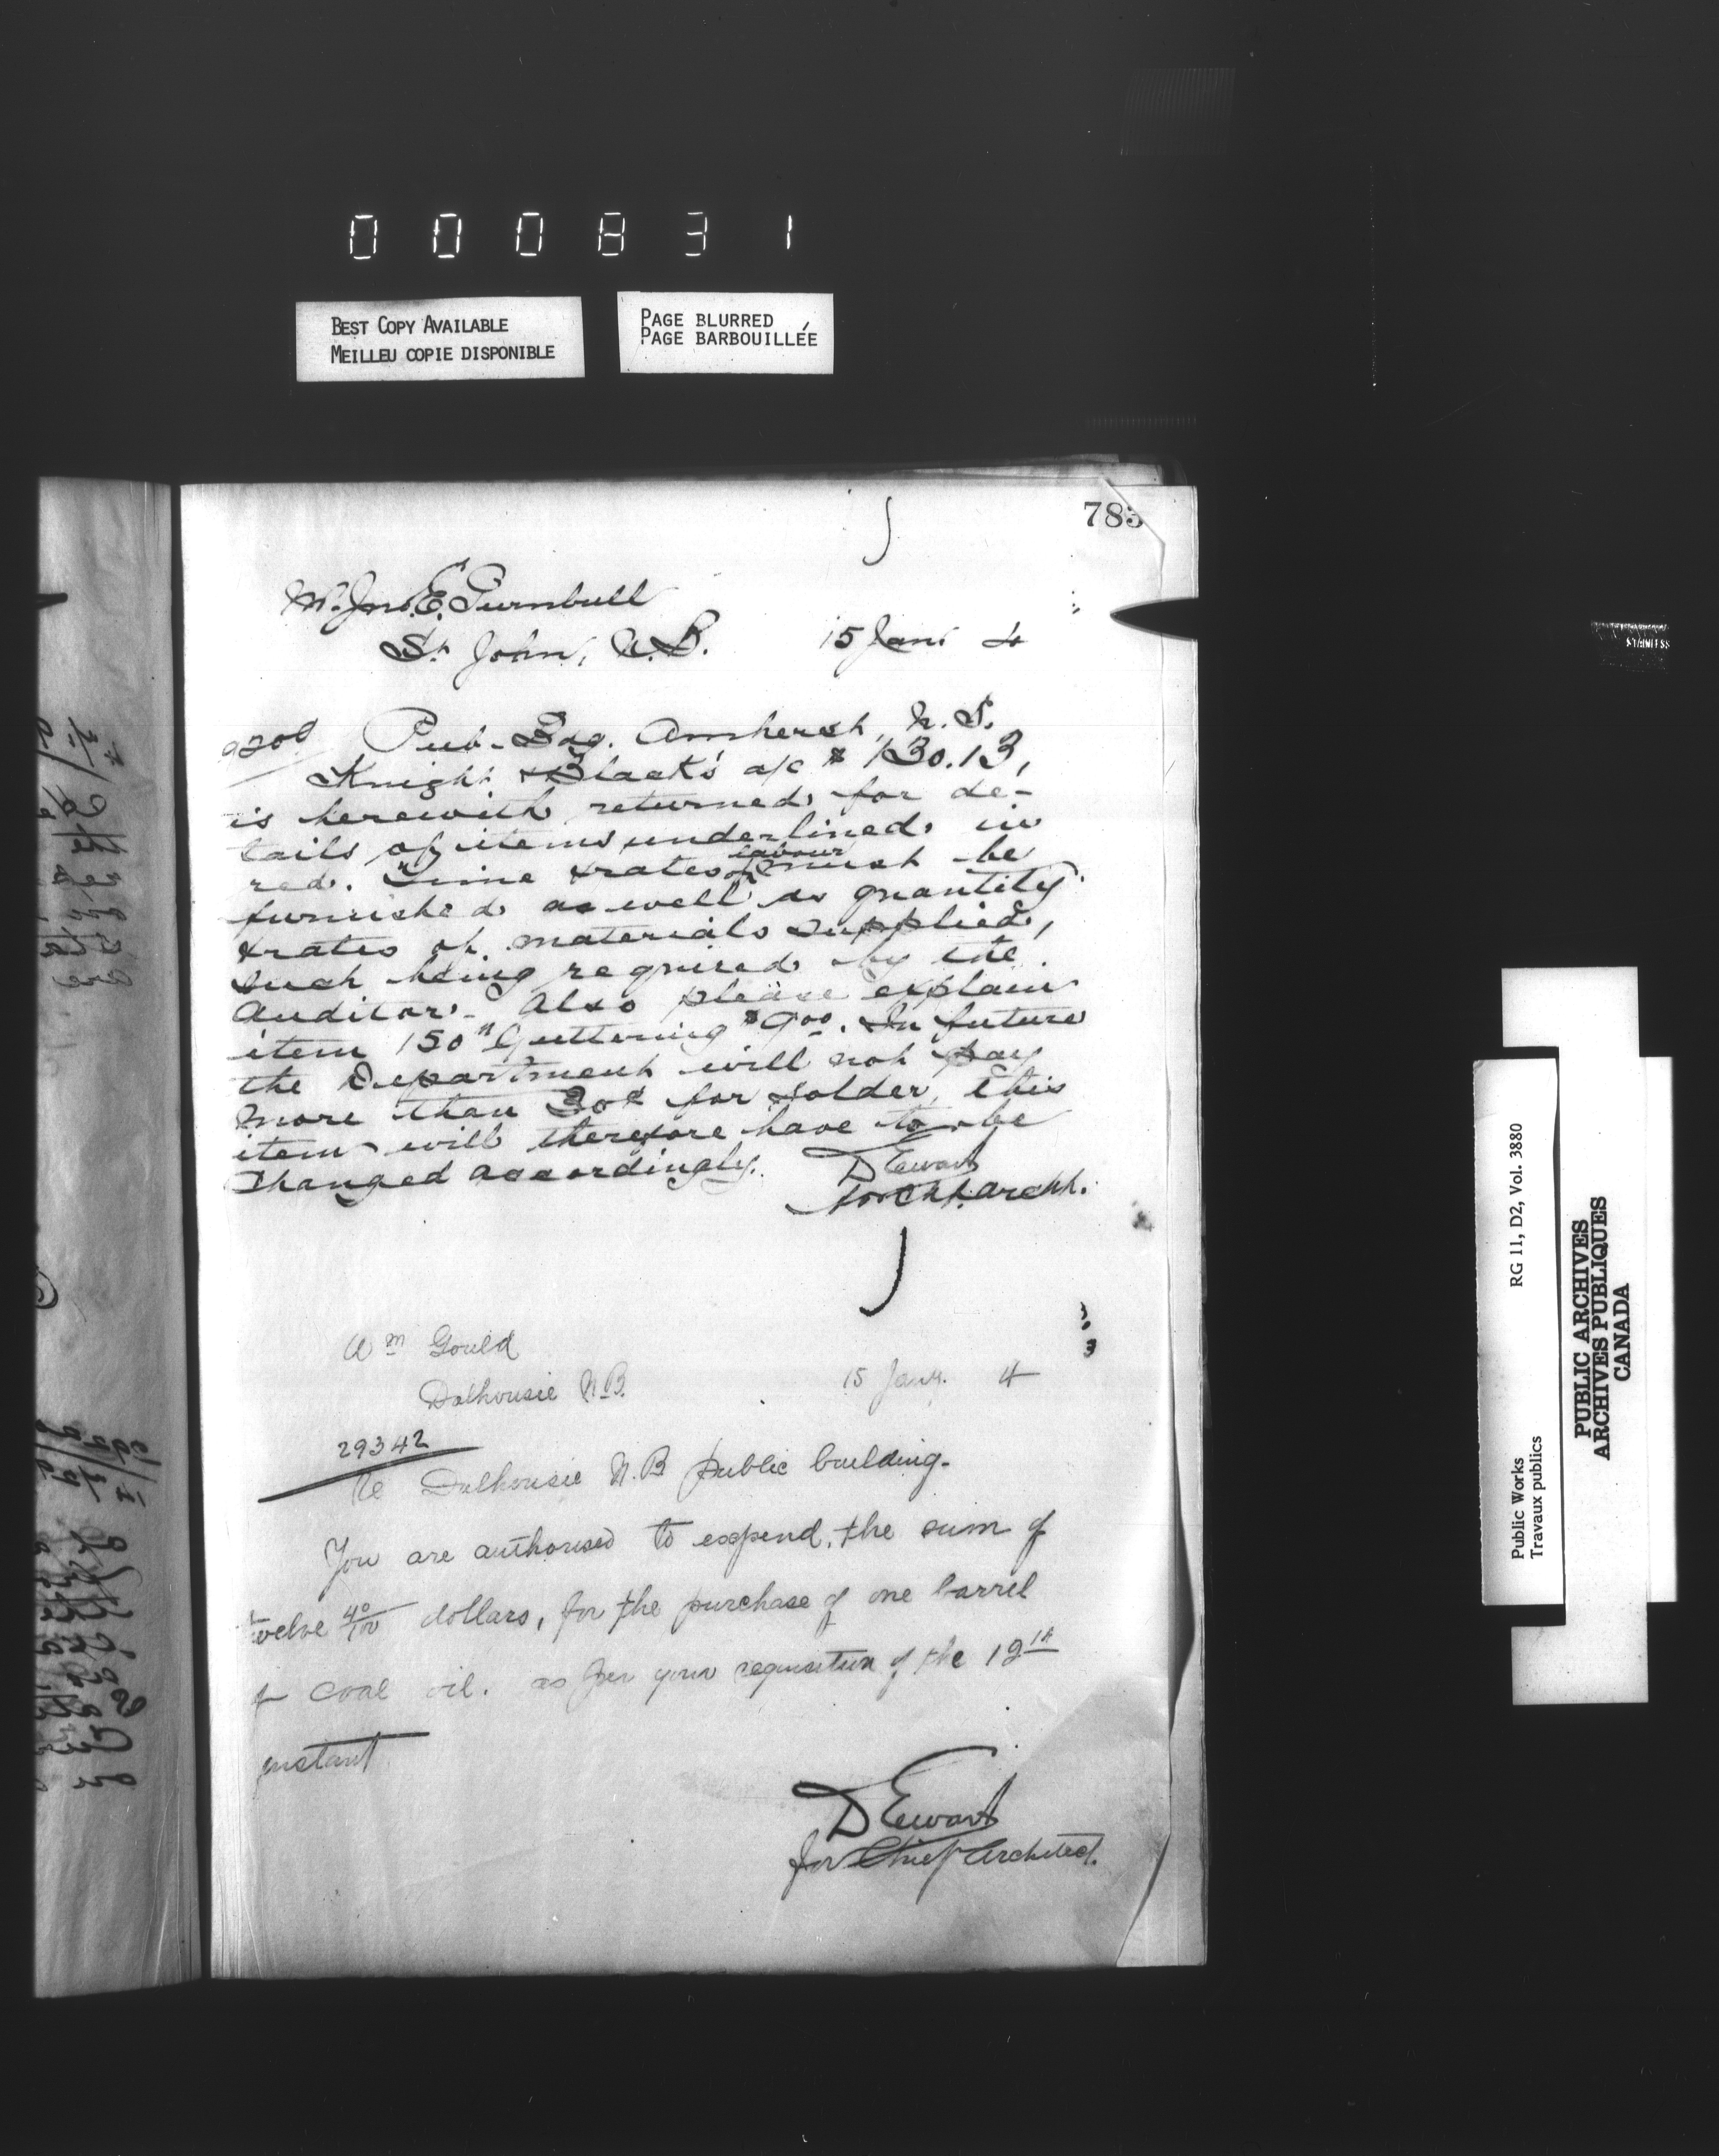 000831
BEST COPY AVAILABLE
MEILLEU COPIE DISPONIBLE
PAGE BLURRED
PAGE BARBOUILLÉE
783
Mr. Jno. E. Turnbull
St. John, N.B. 15 Jan. 4
Pub. Bdg. Amherst, N.S.
Knight & Black's a/c $130.13,
is herewith returned for de-
tails of items underlined in
red. Time & rates of labour must be
furnished as well as quantity
& rates of materials supplied,
such being required by the
Auditor. Also please explain
item 150" Guttering $9.00. In future
the Department will not pay
more than 30¢ for solder, this
item will therefore have to be
changed accordingly.
D Ewart
for Chf. Archt.
Wm Gould
Dalhousie N.B. 15 Jany. 4
29342
Re Dalhousie N.B public building.
You are authorised to expend, the sum of
twelve 40/100 dollars, for the purchase of one barrel
of coal oil. as per your requisition of the 12th
instant
D Ewart
for Chief Architect.
Public Works
Travaux publics
RG 11, D2, Vol. 3880
PUBLIC ARCHIVES
ARCHIVES PUBLIQUES
CANADA